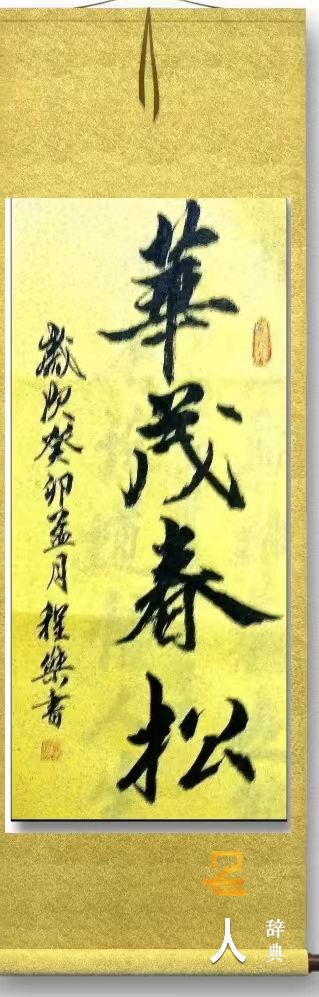 華茂春松
歲次癸卯孟月程樂書
人
辞典